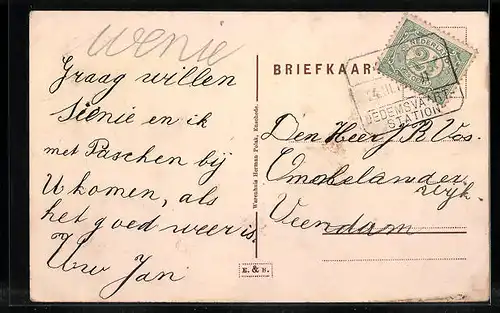 Wenie
Graag willen
Sienie en ik
met Paschen bij
U komen, als
het goed weer is.
Uw Jan
Warenhuis Herman Polak, Enschede.
E. & B.
BRIEFKAAR
NEDERLAND
2½
DEDEMSVAART
STATION
Den Heer J R Vos.
wijk
Veendam